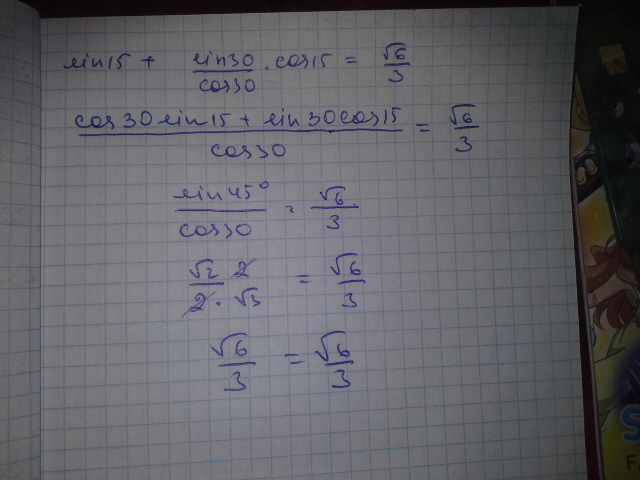 sin15 + sin30/cos30 · cos15 = √6/3
cos30 sin15 + sin30cos15 / cos30 = √6/3
sin45° / cos30 = √6/3
√2/2 · 2/√3 = √6/3
√6/3 = √6/3